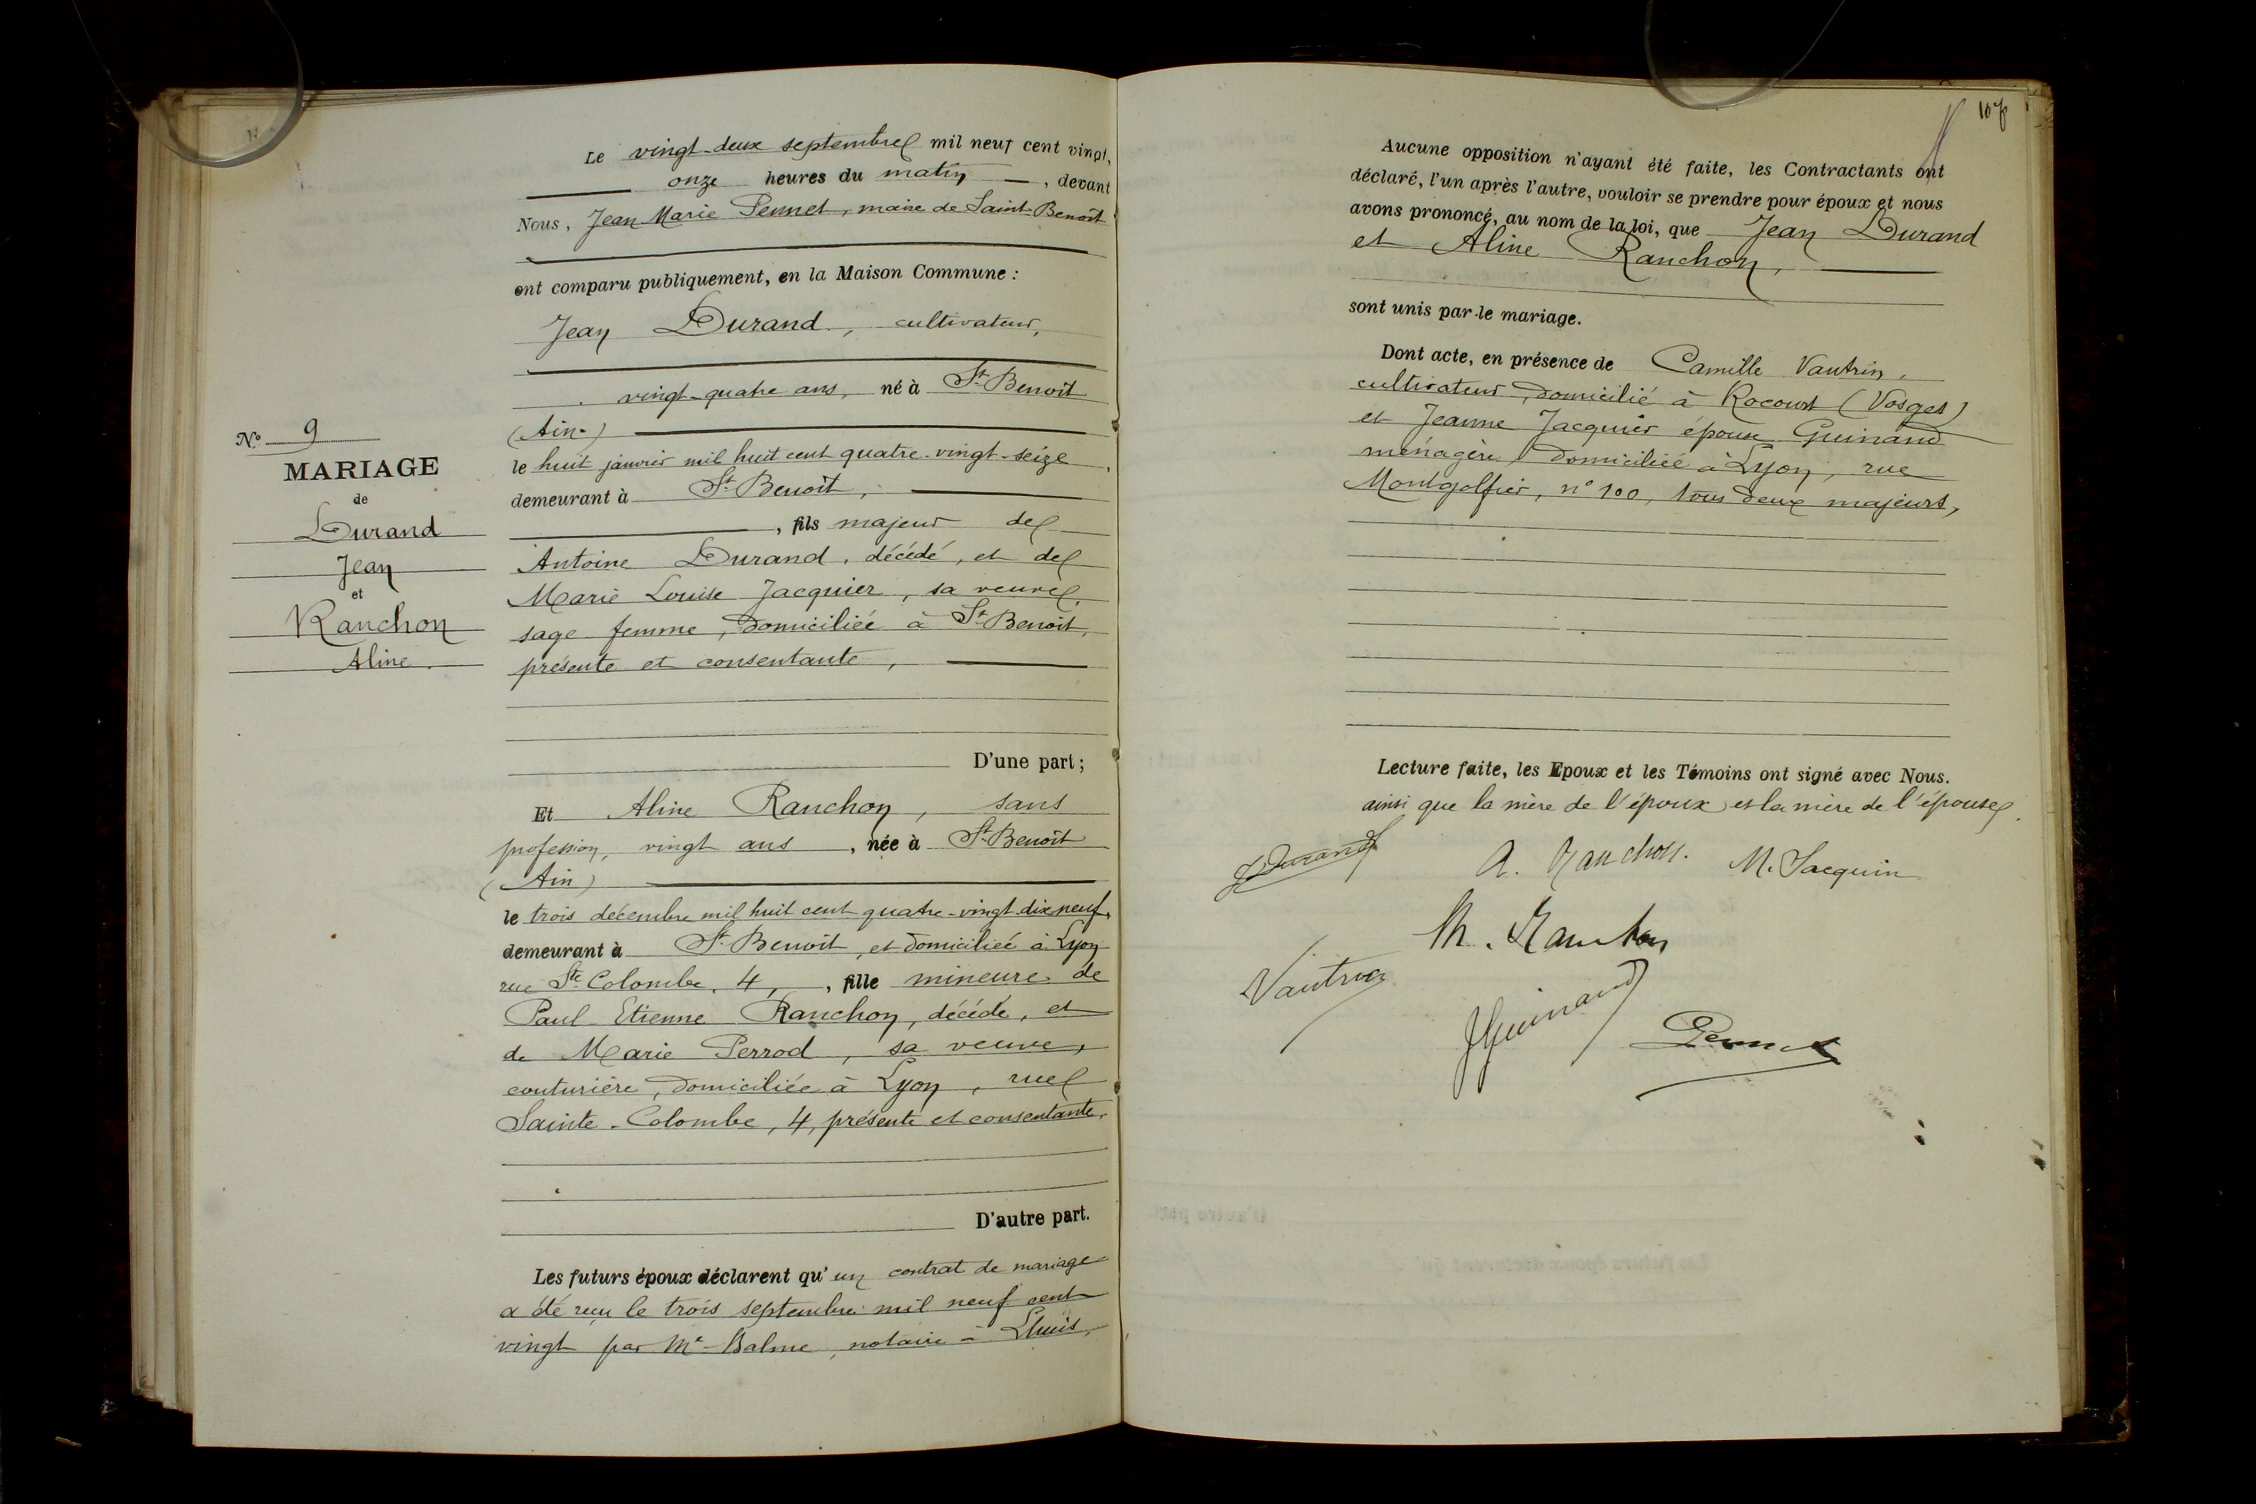 Le vingt-deux septembre mil neuf cent vingt,
onze heures du matin, devant
Nous, Jean Marie Pennet, maire de Saint-Benoît
ont comparu publiquement, en la Maison Commune :
Jean Durand, cultivateur,
vingt-quatre ans, né à St Benoît
(Ain)
le huit janvier mil huit cent quatre-vingt-seize,
demeurant à St Benoît,
, fils majeur de
Antoine Durand, décédé, et de
Marie Louise Jacquier, sa veuve,
sage femme, domiciliée à St Benoît,
présente et consentante,
D'une part ;
Nº 9
MARIAGE
de
Durand
Jean
et
Ranchon
Aline
Et Aline Ranchon, sans
profession, vingt ans, née à St Benoît
(Ain)
le trois décembre mil huit cent quatre-vingt dix neuf,
demeurant à St Benoît, et domiciliée à Lyon
rue Ste Colombe, 4, , fille mineure de
Paul Etienne Ranchon, décédé, et
de Marie Perrod, sa veuve,
couturière, domiciliée à Lyon, rue
Sainte-Colombe, 4, présente et consentante,
D'autre part.
Les futurs époux déclarent qu'un contrat de mariage
a été reçu le trois septembre mil neuf cent
vingt par Me Balme, notaire à Lhuis,
107
Aucune opposition n'ayant été faite, les Contractants ont
déclaré, l'un après l'autre, vouloir se prendre pour époux et nous
avons prononcé, au nom de la loi, que Jean Durand
et Aline Ranchon,
sont unis par le mariage.
Dont acte, en présence de Camille Vautrin,
cultivateur, domicilié à Rocourt (Vosges)
et Jeanne Jacquier épouse Guinand
ménagère domiciliée à Lyon, rue
Montgolfier, nº 100, tous deux majeurs,
Lecture faite, les Epoux et les Témoins ont signé avec Nous.
ainsi que la mère de l'époux et la mère de l'épouse.
J Durand
A. Ranchon. M. Jacquier
M. Ranchon
Vautrin
J Guinand
Pennet